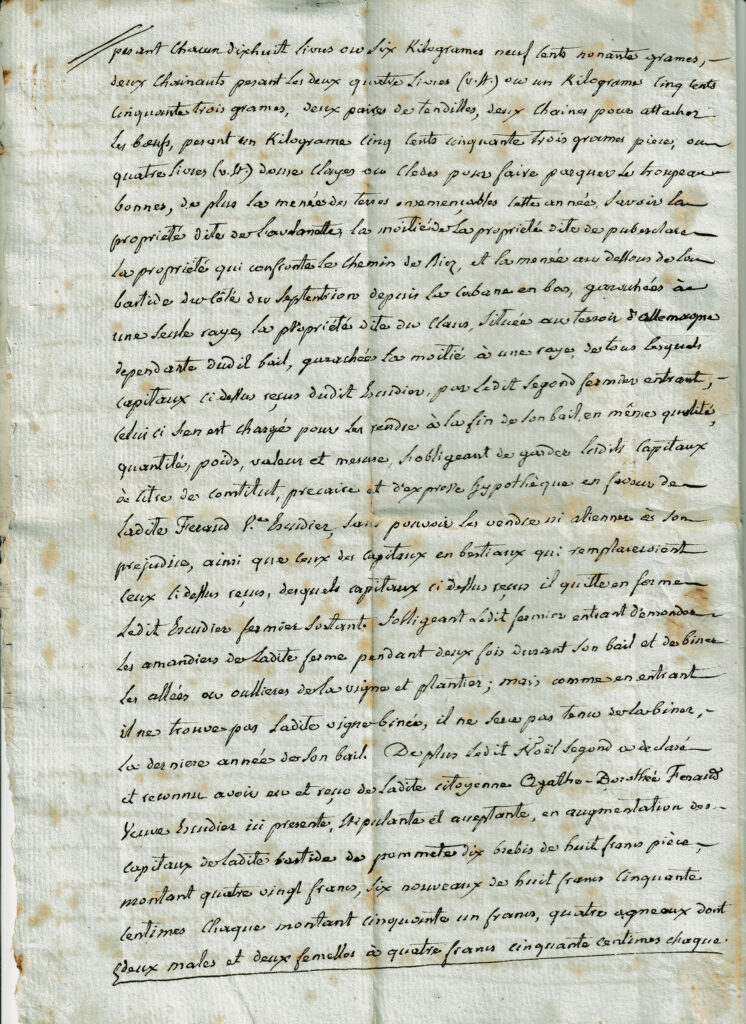 pesant chacun dixhuit livres ou six Kilogrames neuf cents nonante grames,
deux chainants pesant les deux quatre livres (v.st.) ou un Kilograme cinq cents
cinquante trois grames, deux paires de tendilles, deux chaines pour attacher
les bœufs, pesant un Kilograme cinq cents cinquante trois grames piece, ou
quatre livres (v.st.) douse clayes ou cledes pour faire parquer le troupeau
bonnes, de plus la menée des terres ensemençables cette année, savoir la
propriété dite de la moitié de la propriété dite de
la propriété qui confronte le chemin de Riez, et la menée au dessous de la
bastide du côté du septentrion depuis la cabane en bas, garachées à
une seule raye, la propriété dite du Claus, située au terroir d'allemagne
dependante dudit bail, garachée la moitié à une raye, de tous lesquels
capitaux ci dessus reçus dudit Escudier, par ledit Segond fermier entrant,
celui ci s'en est chargé pour les rendre à la fin de son bail, en même qualité,
quantité, poids, valeur et mesure, s'obligeant de garder lesdits capitaux
à titre de constitut, precaire et d'expresse hypothèque en faveur de
ladite Feraud V.ve Escudier, sans pouvoir les vendre ni aliener à son
prejudice, ainsi que ceux des capitaux en bestiaux qui remplaceroient
ceux ci dessus reçus, desquels capitaux ci dessus reçus il quitte en forme
ledit Escudier fermier sortant. S'obligeant ledit fermier entrant d'emonder
les amandiers de ladite ferme pendant deux fois durant son bail et de biner
les allées ou oullieres de la vigne et plantier; mais comme en entrant
il ne trouve pas ladite vigne binée, il ne sera pas tenu de la biner,
la derniere année de son bail. De plus ledit Noël Segond a declaré
et reconnu avoir eu et reçu de ladite citoyenne Agathe-Dorothée Feraud
Veuve Escudier ici presente, stipulante et acceptante, en augmentation des
capitaux de ladite bastide de pommete dix brebis de huit francs pièce,
montant quatre vingt francs, six nouveaux de huit francs cinquante
centimes chaque montant cinquante un francs, quatre agneaux dont
deux males et deux femelles à quatre francs cinquante centimes chaque.